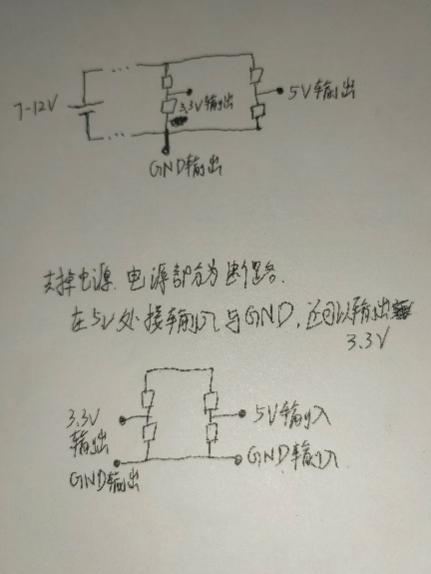 7-12V
3.3V输出
5V输出
GND输出
去掉电源,电源部分为断路.
在5V处接输入与GND,还可以输出
3.3V
3.3V
输出
5V输入
GND输出
GND输入